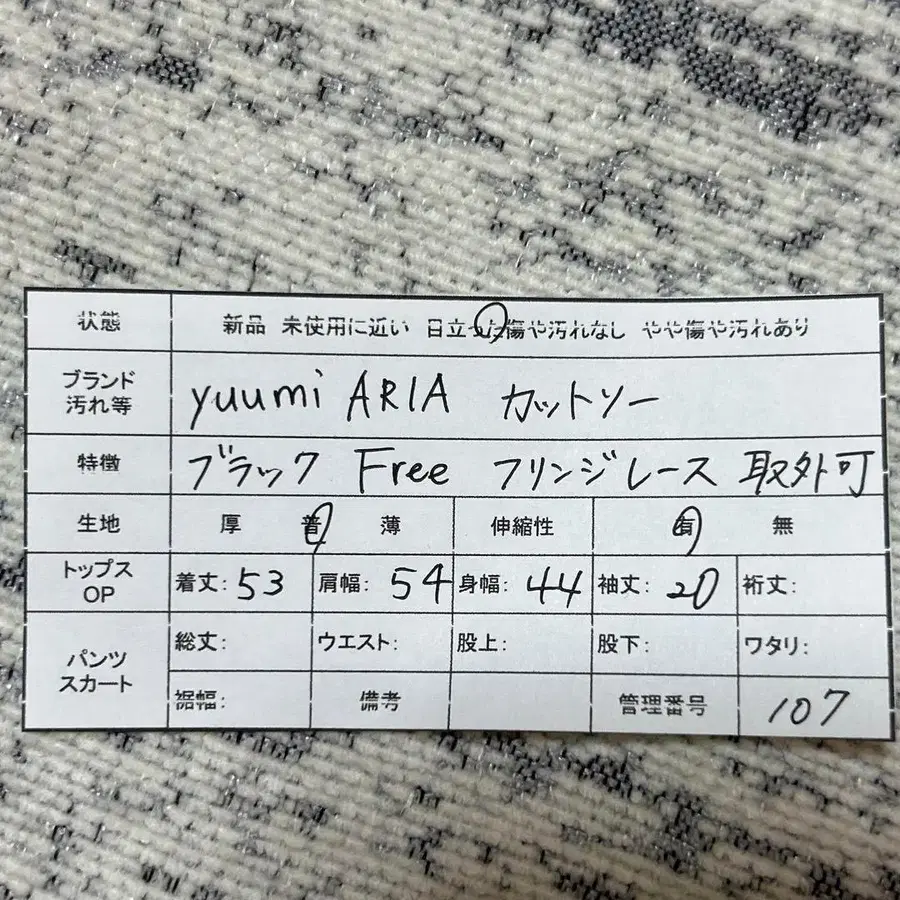 状態 新品 未使用に近い 目立った傷や汚れなし やや傷や汚れあり
ブランド
汚れ等 yuumi ARIA カットソー
特徴 ブラック Free フリンジレース 取外可
生地 厚 普 薄 伸縮性 有 無
トップス
OP 着丈: 53 肩幅: 54 身幅: 44 袖丈: 20 裄丈:
パンツ
スカート 総丈: ウエスト: 股上: 股下: ワタリ:
裾幅: 備考 管理番号 107